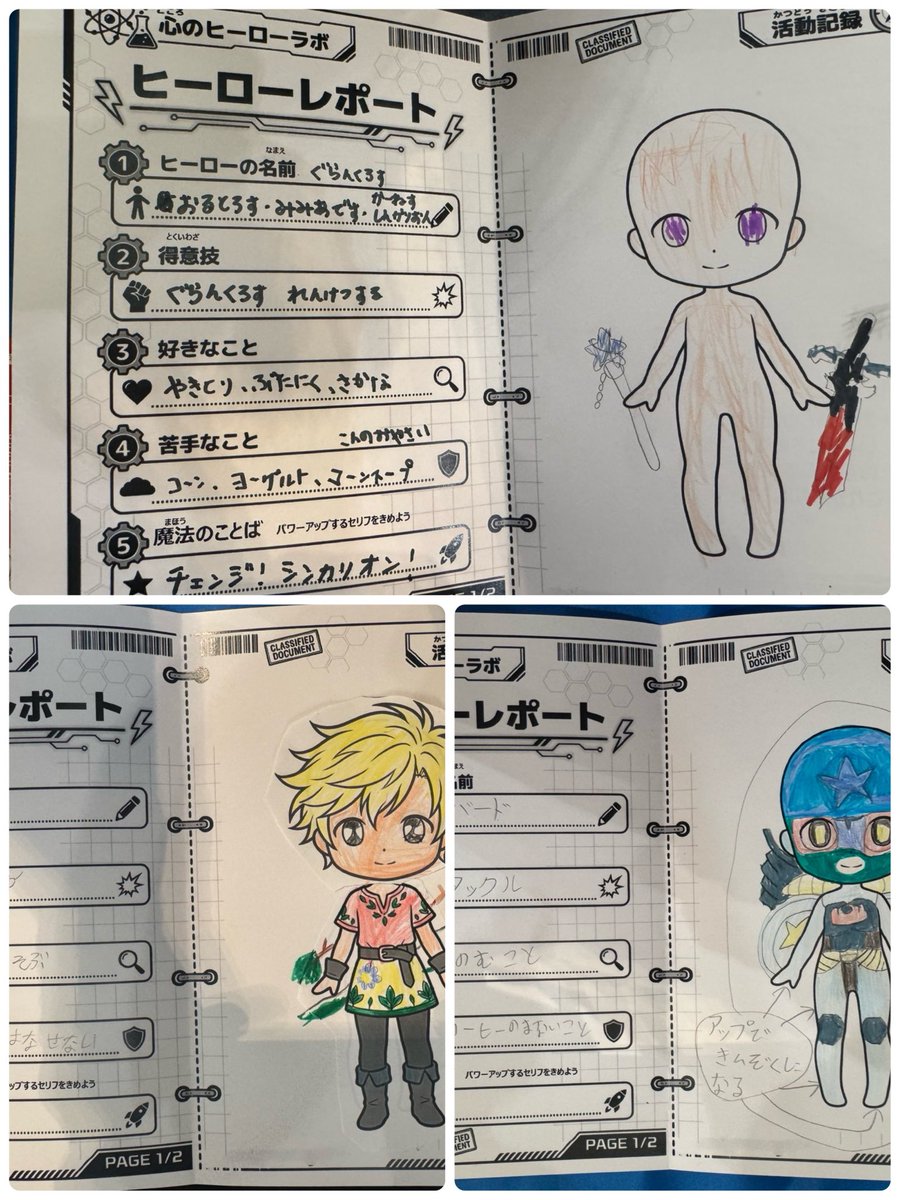 こころ
心のヒーローラボ
CLASSIFIED DOCUMENT
かつどう
活動記録
ヒーローレポート
1 ヒーローの名前 ぐらんくろす
なまえ
おるとろす・みみあです・
とくいわざ
2 得意技
ぐらんくろす れんけつする
3 好きなこと
やきとり、ぶたにく、さかな
4 苦手なこと こんのおやさい
コーン、ヨーグルト、コーンスープ
まほう
5 魔法のことば パワーアップするセリフをきめよう
チェンジ!シンカリオン!
1/2
CLASSIFIED DOCUMENT
かつ
活
ポート
はなせない
ップするセリフをきめよう
PAGE 1/2
ーローラボ
CLASSIFIED DOCUMENT
ーレポート
なまえ
名前
バード
タックル
のむこと
コーヒーのまないこと
パワーアップするセリフをきめよう
アップで
きんぞくに
なる
PAGE 1/2